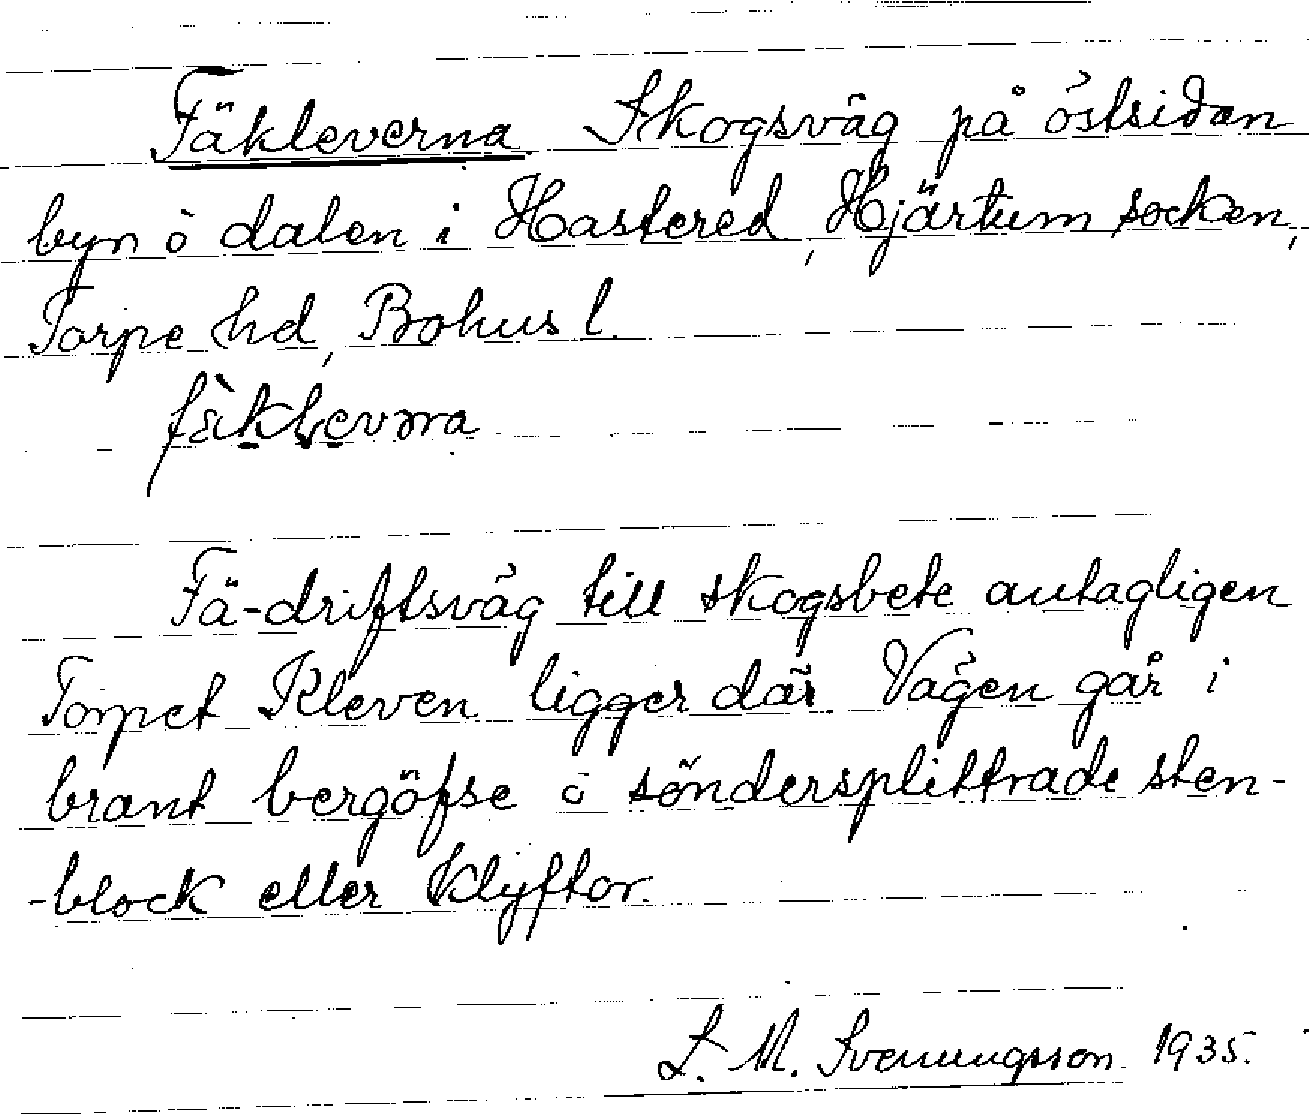 Fäkleverna Skogsväg på östsidan
byn ò dalen i Hastered, Hjärtum socken,
Torpe hd, Bohus l.
fä̀klevəra
Fä-driftsväg till skogsbete antagligen
Torpet Kleven ligger där Vägen går i
brant bergöfse ò söndersplittrade sten-
-block eller klyftor.
L. M. Svenungsson 1935.